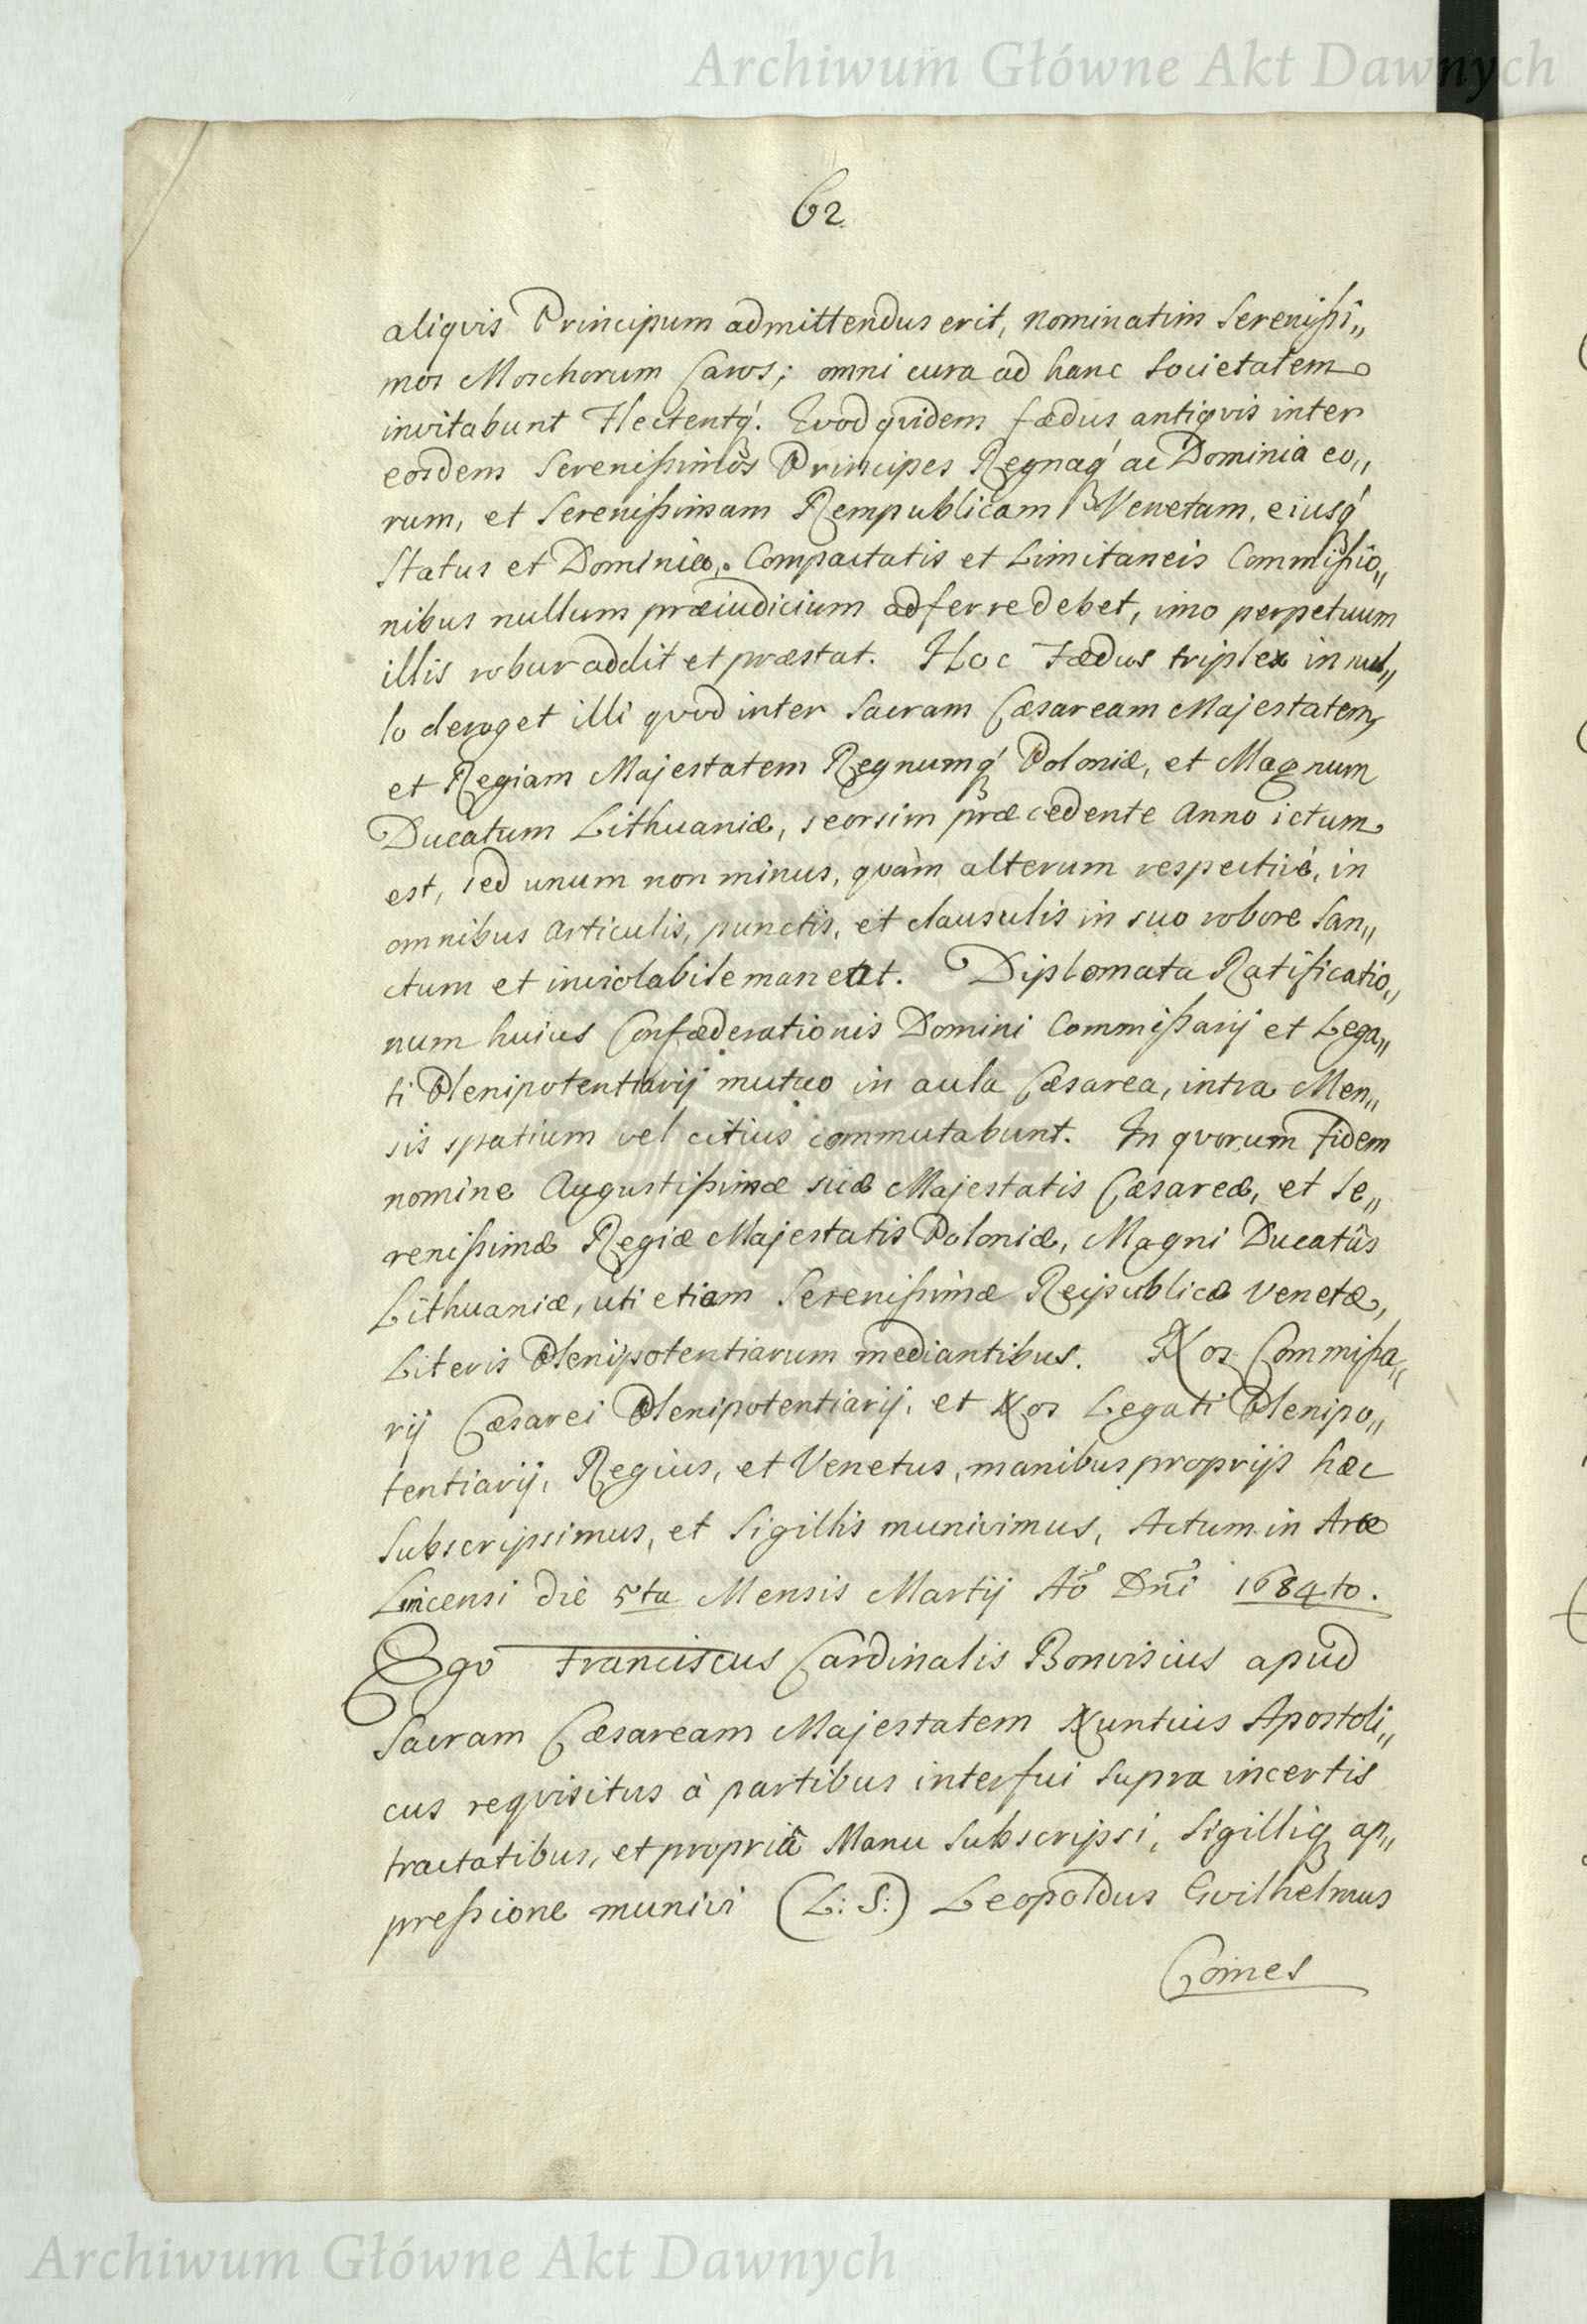 Archiwum Główne Akt Dawnych
62
aliqvis Principum admittendus erit, nominatim Sereniſsi„
mos Moschorum Caros; omni cura ad hanc Societatem
invitabunt Flectentq́. Qvod qvidem fædus antiqvis inter
eosdem Sereniſsimos Principes Regnaq́ ac Dominia eo„
rum, et Sereniſsimam Rempublicam Venetam, eiusq́
Status et Dominia, Compactatis et Limitaneis Commiſsio„
nibus nullum præiudicium adferre debet, imo perpetuum
illis robur addit et præstat. Hoc Fædus triplex in nul„
lo deroget illi qvod inter Sacram Cæsaream Majestatem,
et Regiam Majestatem Regnumq́ Poloniæ, et Magnum
Ducatum Lithuaniæ, seorsim præcedente Anno ictum
est, sed unum non minus, qvàm alterum respectivè, in
omnibus Articulis, punctis, et clausulis in suo robore San„
ctum et inviolabile maneat. Diplomata Ratificatio„
num huius Confæderationis Domini Commiſsarij et Lega„
ti Plenipotentiarij mutuo in aula Cæsarea, intra Men„
sis spatium vel citius commutabunt. In qvorum fidem
nomine Augustiſsimæ suæ Majestatis Cæsareæ, et Se„
reniſsimæ Regiæ Majestatis Poloniæ, Magni Ducatûs
Lithuaniæ, uti etiam Sereniſsimæ Reipublicæ Venetæ,
Literis Plenipotentiarum mediantibus. Nos Commiſsa„
rij Cæsarei Plenipotentiarij, et Nos Legati Plenipo„
tentiarij, Regius, et Venetus, manibus proprijs hæc
Subscripsimus, et Sigillis munivimus, Actum in Arce
Lincensi die 5ta Mensis Martij Aō Dnī 1684to.
Ego Franciscus Cardinalis Bonvisius apud
Sacram Cæsaream Majestatem Nuntius Apostoli„
cus reqvisitus à partibus interfui supra incertis
tractatibus, et propriâ Manu Subscripsi, Sigilliq ap„
preſsione munivi (L: S:) Leopoldus Gvilhelmus
Comes
Archiwum Główne Akt Dawnych